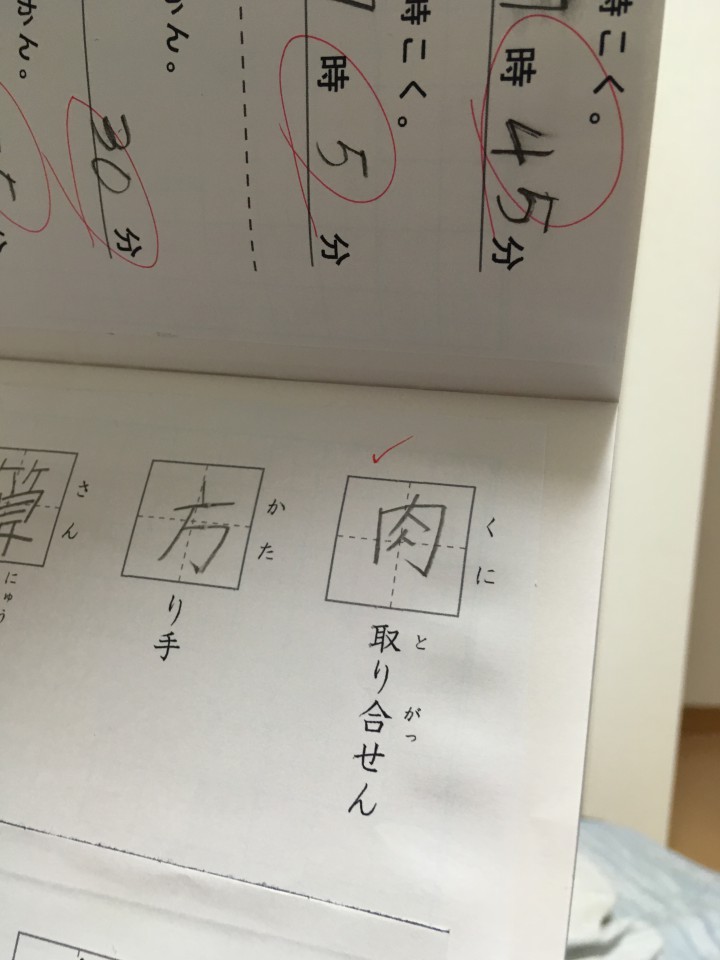 時こく。
時45分
時こく。
時5分
かん。
30分
かん。
分
くに
肉
とがっ
取り合せん
かた
方
り手
さん
算
にゅう